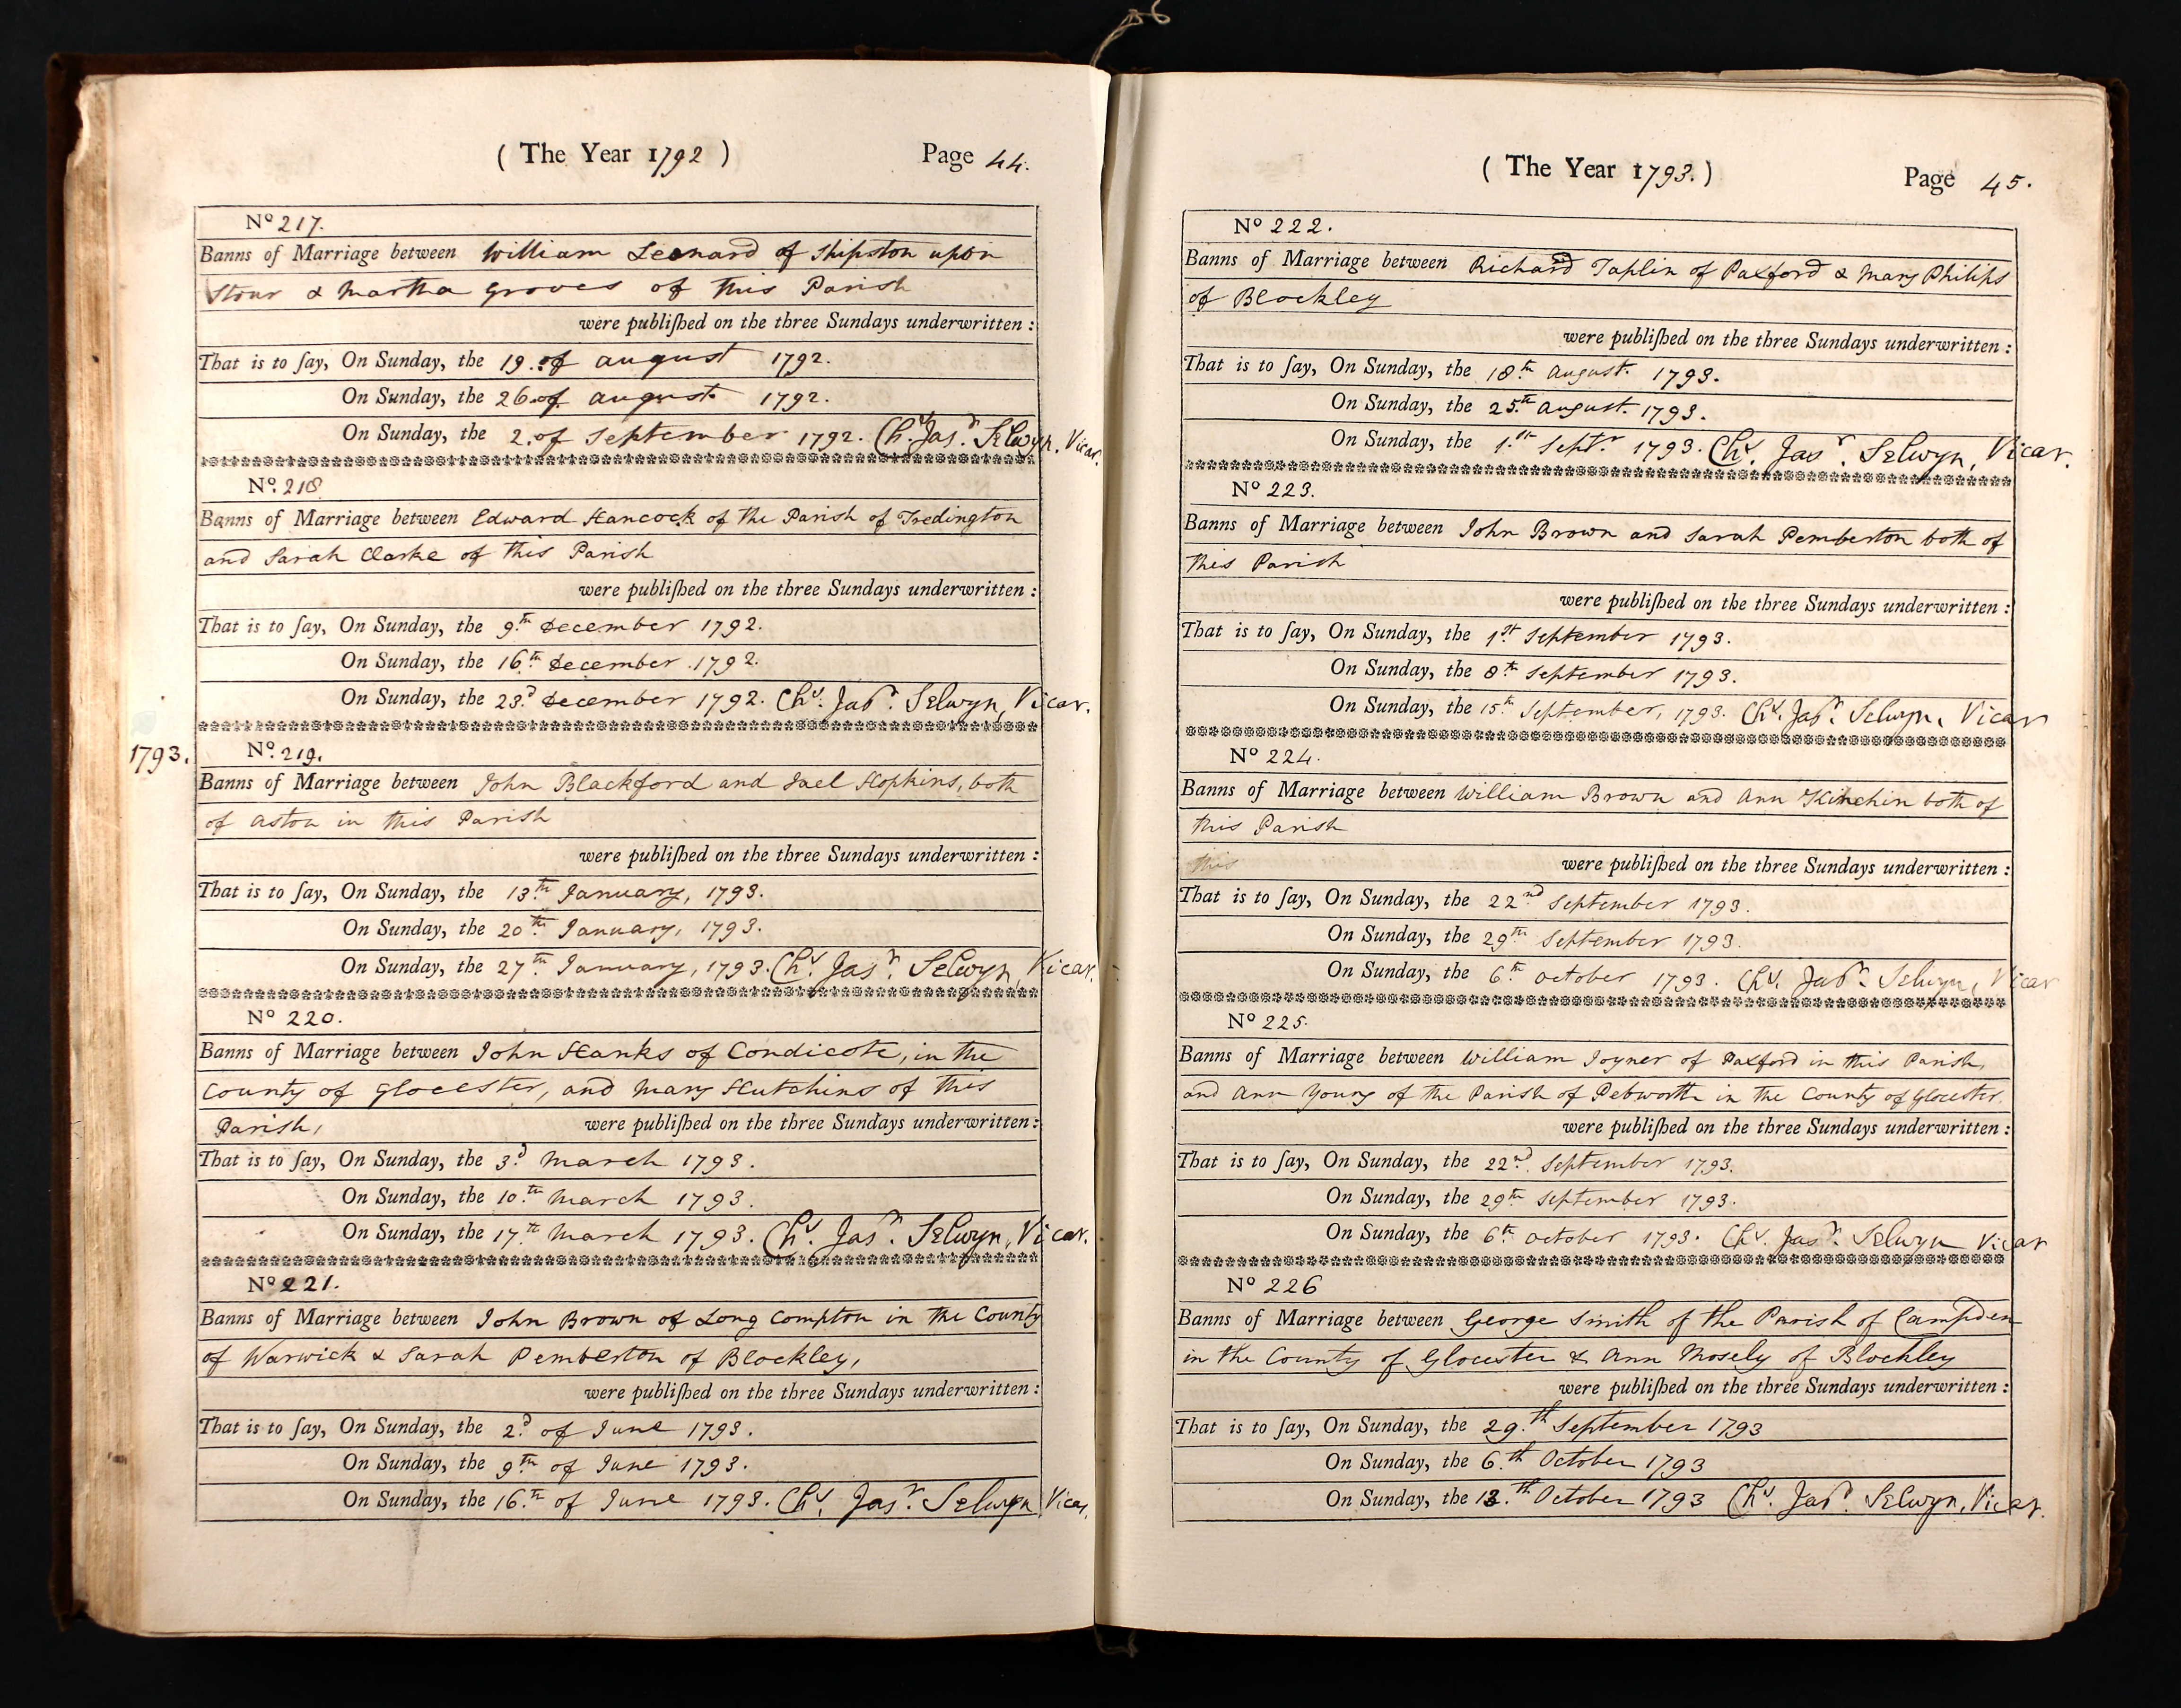 ( The Year 1792 ) Page 44.
No 217.
Banns of Marriage between William Leonard of Shipston upon
Stour & Martha Groves of this Parish
were publiſhed on the three Sundays underwritten :
That is to ſay, On Sunday, the 19. of August 1792.
On Sunday, the 26. of August 1792.
On Sunday, the 2. of September 1792. Chs. Jasr. Selwyn, Vicar.
No. 218
Banns of Marriage between Edward Hancock of the Parish of Tredington
and Sarah Clarke of this Parish
were publiſhed on the three Sundays underwritten :
That is to ſay, On Sunday, the 9.th December 1792.
On Sunday, the 16.th December 1792.
On Sunday, the 23.d December 1792. Chs. Jasr. Selwyn, Vicar.
1793. No. 219.
Banns of Marriage between John Blackford and Jael Hopkins, both
of Aston in this Parish
were publiſhed on the three Sundays underwritten :
That is to ſay, On Sunday, the 13.th January, 1793.
On Sunday, the 20.th January, 1793.
On Sunday, the 27.th January, 1793. Chs. Jasr. Selwyn, Vicar.
No 220.
Banns of Marriage between John Hanks of Condicote, in the
County of Glocester, and Mary Hutchins of this
Parish, were publiſhed on the three Sundays underwritten :
That is to ſay, On Sunday, the 3.d March 1793.
On Sunday, the 10.th March 1793.
On Sunday, the 17.th March 1793. Chs. Jasr. Selwyn, Vicar.
No 221.
Banns of Marriage between John Brown of Long Compton in the County
of Warwick & Sarah Pemberton of Blockley,
were publiſhed on the three Sundays underwritten :
That is to ſay, On Sunday, the 2.d of June 1793.
On Sunday, the 9.th of June 1793.
On Sunday, the 16.th of June 1793. Chs. Jasr. Selwyn Vicar.
( The Year 1793. ) Page 45.
No 222.
Banns of Marriage between Richard Taplin of Paxford & Mary Philips
of Blockley
were publiſhed on the three Sundays underwritten :
That is to ſay, On Sunday, the 18.th August. 1793.
On Sunday, the 25.th August. 1793.
On Sunday, the 1.st Septr. 1793. Chs. Jasr. Selwyn, Vicar.
No 223.
Banns of Marriage between John Brown and Sarah Pemberton both of
this Parish
were publiſhed on the three Sundays underwritten :
That is to ſay, On Sunday, the 1.st September 1793.
On Sunday, the 8th September 1793.
On Sunday, the 15.th September, 1793. Chs. Jasr. Selwyn, Vicar
No 224.
Banns of Marriage between William Brown and Ann Kinchin both of
this Parish
this were publiſhed on the three Sundays underwritten :
That is to ſay, On Sunday, the 22.nd September 1793.
On Sunday, the 29th September 1793.
On Sunday, the 6.th October 1793. Chs. Jasr. Selwyn, Vicar
No 225.
Banns of Marriage between William Joyner of Paxford in this Parish,
and Ann Young of the Parish of Pebworth in the County of Glocester.
were publiſhed on the three Sundays underwritten :
That is to ſay, On Sunday, the 22.nd September 1793.
On Sunday, the 29th September 1793.
On Sunday, the 6th October 1793. Chs. Jasr. Selwyn Vicar
No 226
Banns of Marriage between George Smith of the Parish of Campden
in the County of Glocester & Ann Mosely of Blockley
were publiſhed on the three Sundays underwritten :
That is to ſay, On Sunday, the 29.th September 1793
On Sunday, the 6.th October 1793
On Sunday, the 13.th October 1793 Chs. Jasr. Selwyn, Vicar.